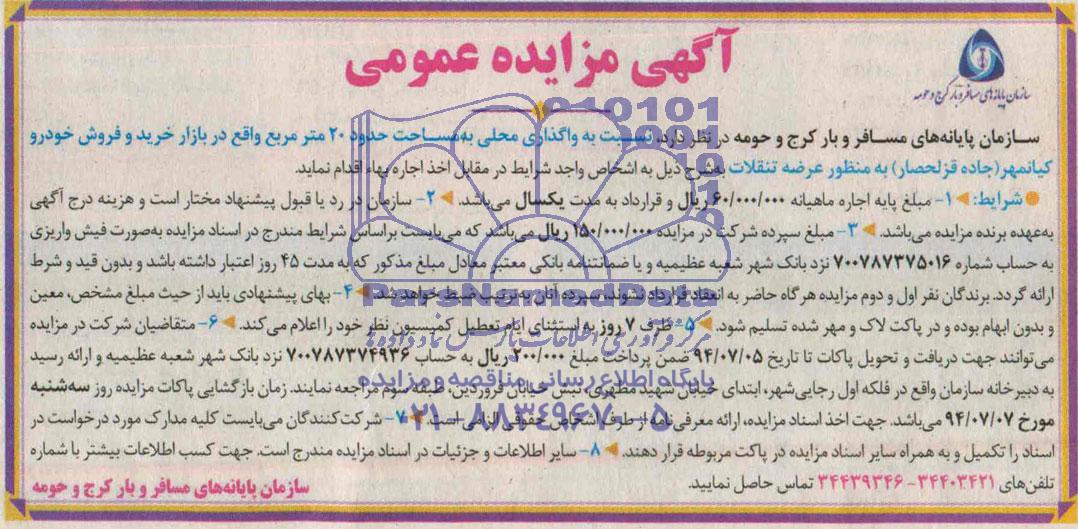 آگهی مزایده عمومی
سازمان پایانه‌های مسافر و بار کرج و حومه
سازمان پایانه‌های مسافر و بار کرج و حومه در نظر دارد، نسبت به واگذاری محلی به مساحت حدود ۲۰ متر مربع واقع در بازار خرید و فروش خودرو
کیانمهر (جاده قزلحصار) به منظور عرضه تنقلات به‌شرح ذیل به اشخاص واجد شرایط در مقابل اخذ اجاره بهاء اقدام نماید.
شرایط: ۱- مبلغ پایه اجاره ماهیانه ۶۰/۰۰۰/۰۰۰ ریال و قرارداد به مدت یکسال می‌باشد. ۲- سازمان در رد یا قبول پیشنهاد مختار است و هزینه درج آگهی
به‌عهده برنده مزایده می‌باشد. ۳- مبلغ سپرده شرکت در مزایده ۱۵۰/۰۰۰/۰۰۰ ریال می‌باشد که می‌بایست براساس شرایط مندرج در اسناد مزایده به‌صورت فیش واریزی
به حساب شماره ۷۰۰۷۸۷۳۷۵۰۱۶ نزد بانک شهر شعبه عظیمیه و یا ضمانتنامه بانکی معتبر معادل مبلغ مذکور که به مدت ۴۵ روز اعتبار داشته باشد و بدون قید و شرط
ارائه گردد. برندگان نفر اول و دوم مزایده هرگاه حاضر به انعقاد قرارداد نشوند، سپرده آنان به ترتیب ضبط خواهد شد. ۴- بهای پیشنهادی باید از حیث مبلغ مشخص، معین
و بدون ابهام بوده و در پاکت لاک و مهر شده تسلیم شود. ۵- ظرف ۷ روز به استثنای ایام تعطیل کمیسیون نظر خود را اعلام می‌کند. ۶- متقاضیان شرکت در مزایده
می‌توانند جهت دریافت و تحویل پاکات تا تاریخ ۹۴/۰۷/۰۵ ضمن پرداخت مبلغ ۲۰۰/۰۰۰ ریال به حساب ۷۰۰۷۸۷۳۷۴۹۳۶ نزد بانک شهر شعبه عظیمیه و ارائه رسید
به دبیرخانه سازمان واقع در فلکه اول رجایی‌شهر، ابتدای خیابان شهید مطهری، نبش خیابان فروردین، طبقه سوم مراجعه نمایند. زمان بازگشایی پاکات مزایده روز سه‌شنبه
مورخ ۹۴/۰۷/۰۷ می‌باشد. جهت اخذ اسناد مزایده، ارائه معرفی‌نامه از طرف اشخاص حقوقی الزامی است. ۷- شرکت‌کنندگان می‌بایست کلیه مدارک مورد درخواست در
اسناد را تکمیل و به همراه سایر اسناد مزایده در پاکت مربوطه قرار دهند. ۸- سایر اطلاعات و جزئیات در اسناد مزایده مندرج است. جهت کسب اطلاعات بیشتر با شماره
تلفن‌های ۳۴۴۰۳۴۲۱ - ۳۴۴۳۹۳۴۶ تماس حاصل نمایید.
سازمان پایانه‌های مسافر و بار کرج و حومه
010101
ParsNamadData
مرکز فرآوری اطلاعات پارس نماد داده‌ها
پایگاه اطلاع رسانی مناقصه و مزایده
۰۲۱-۸۸۳۴۹۶۷۰-۵